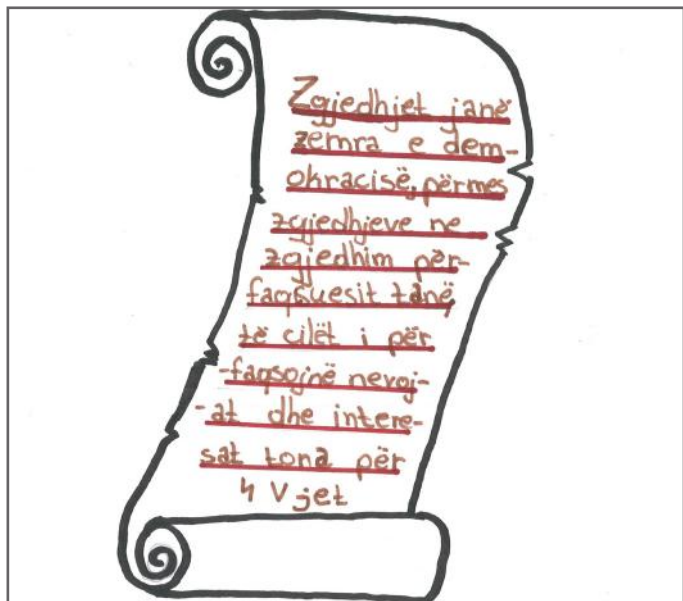 Zgjedhjet janë
zemra e dem-
okracisë, përmes
zgjedhjeve ne
zgjedhim për-
faqsuesit tanë,
të cilët i për
-faqsojnë nevoj-
-at dhe intere-
sat tona për
4 Vjet